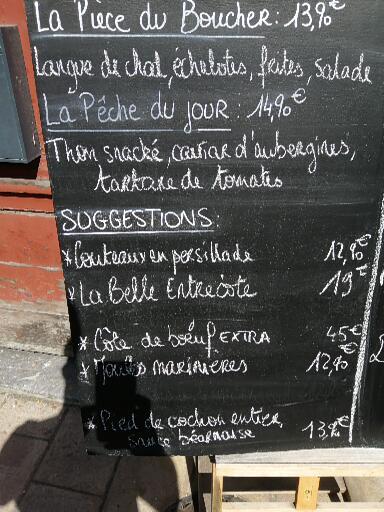 La Pièce du Boucher: 13,90€
Langue de chat, échalotes, frites, salade
La Pêche du jour: 14,90€
Thon snacké, caviar d'aubergines,
tartare de tomates
SUGGESTIONS:
* Couteaux en persillade 12,90€
* La Belle Entrecôte 19€
* Côte de boeuf EXTRA 45€
* Moules marinières 12,90€
* Pied de cochon entier, 13,90€
sauce béarnaise